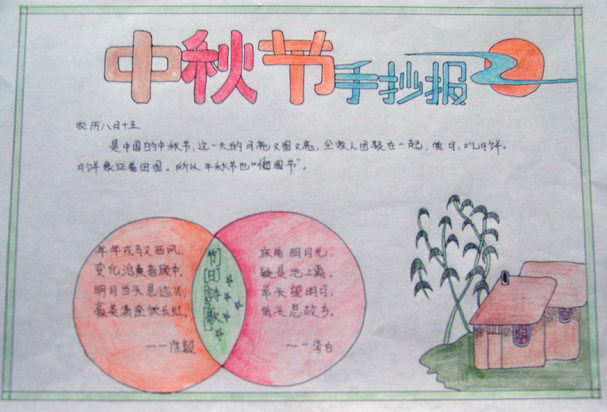 中秋节手抄报
农历八月十五
是中国的中秋节,这一天的月亮又圆又亮,全家人团聚在一起,月,吃月饼。
月饼象征着团圆。所以中秋节也"圆节"。
年年又西风,
变化中,
明月当头思
长虹。
——陈毅
节日诗歌
床前明月光,
疑是地上霜。
举头望明月,
低头思故乡。
——李白